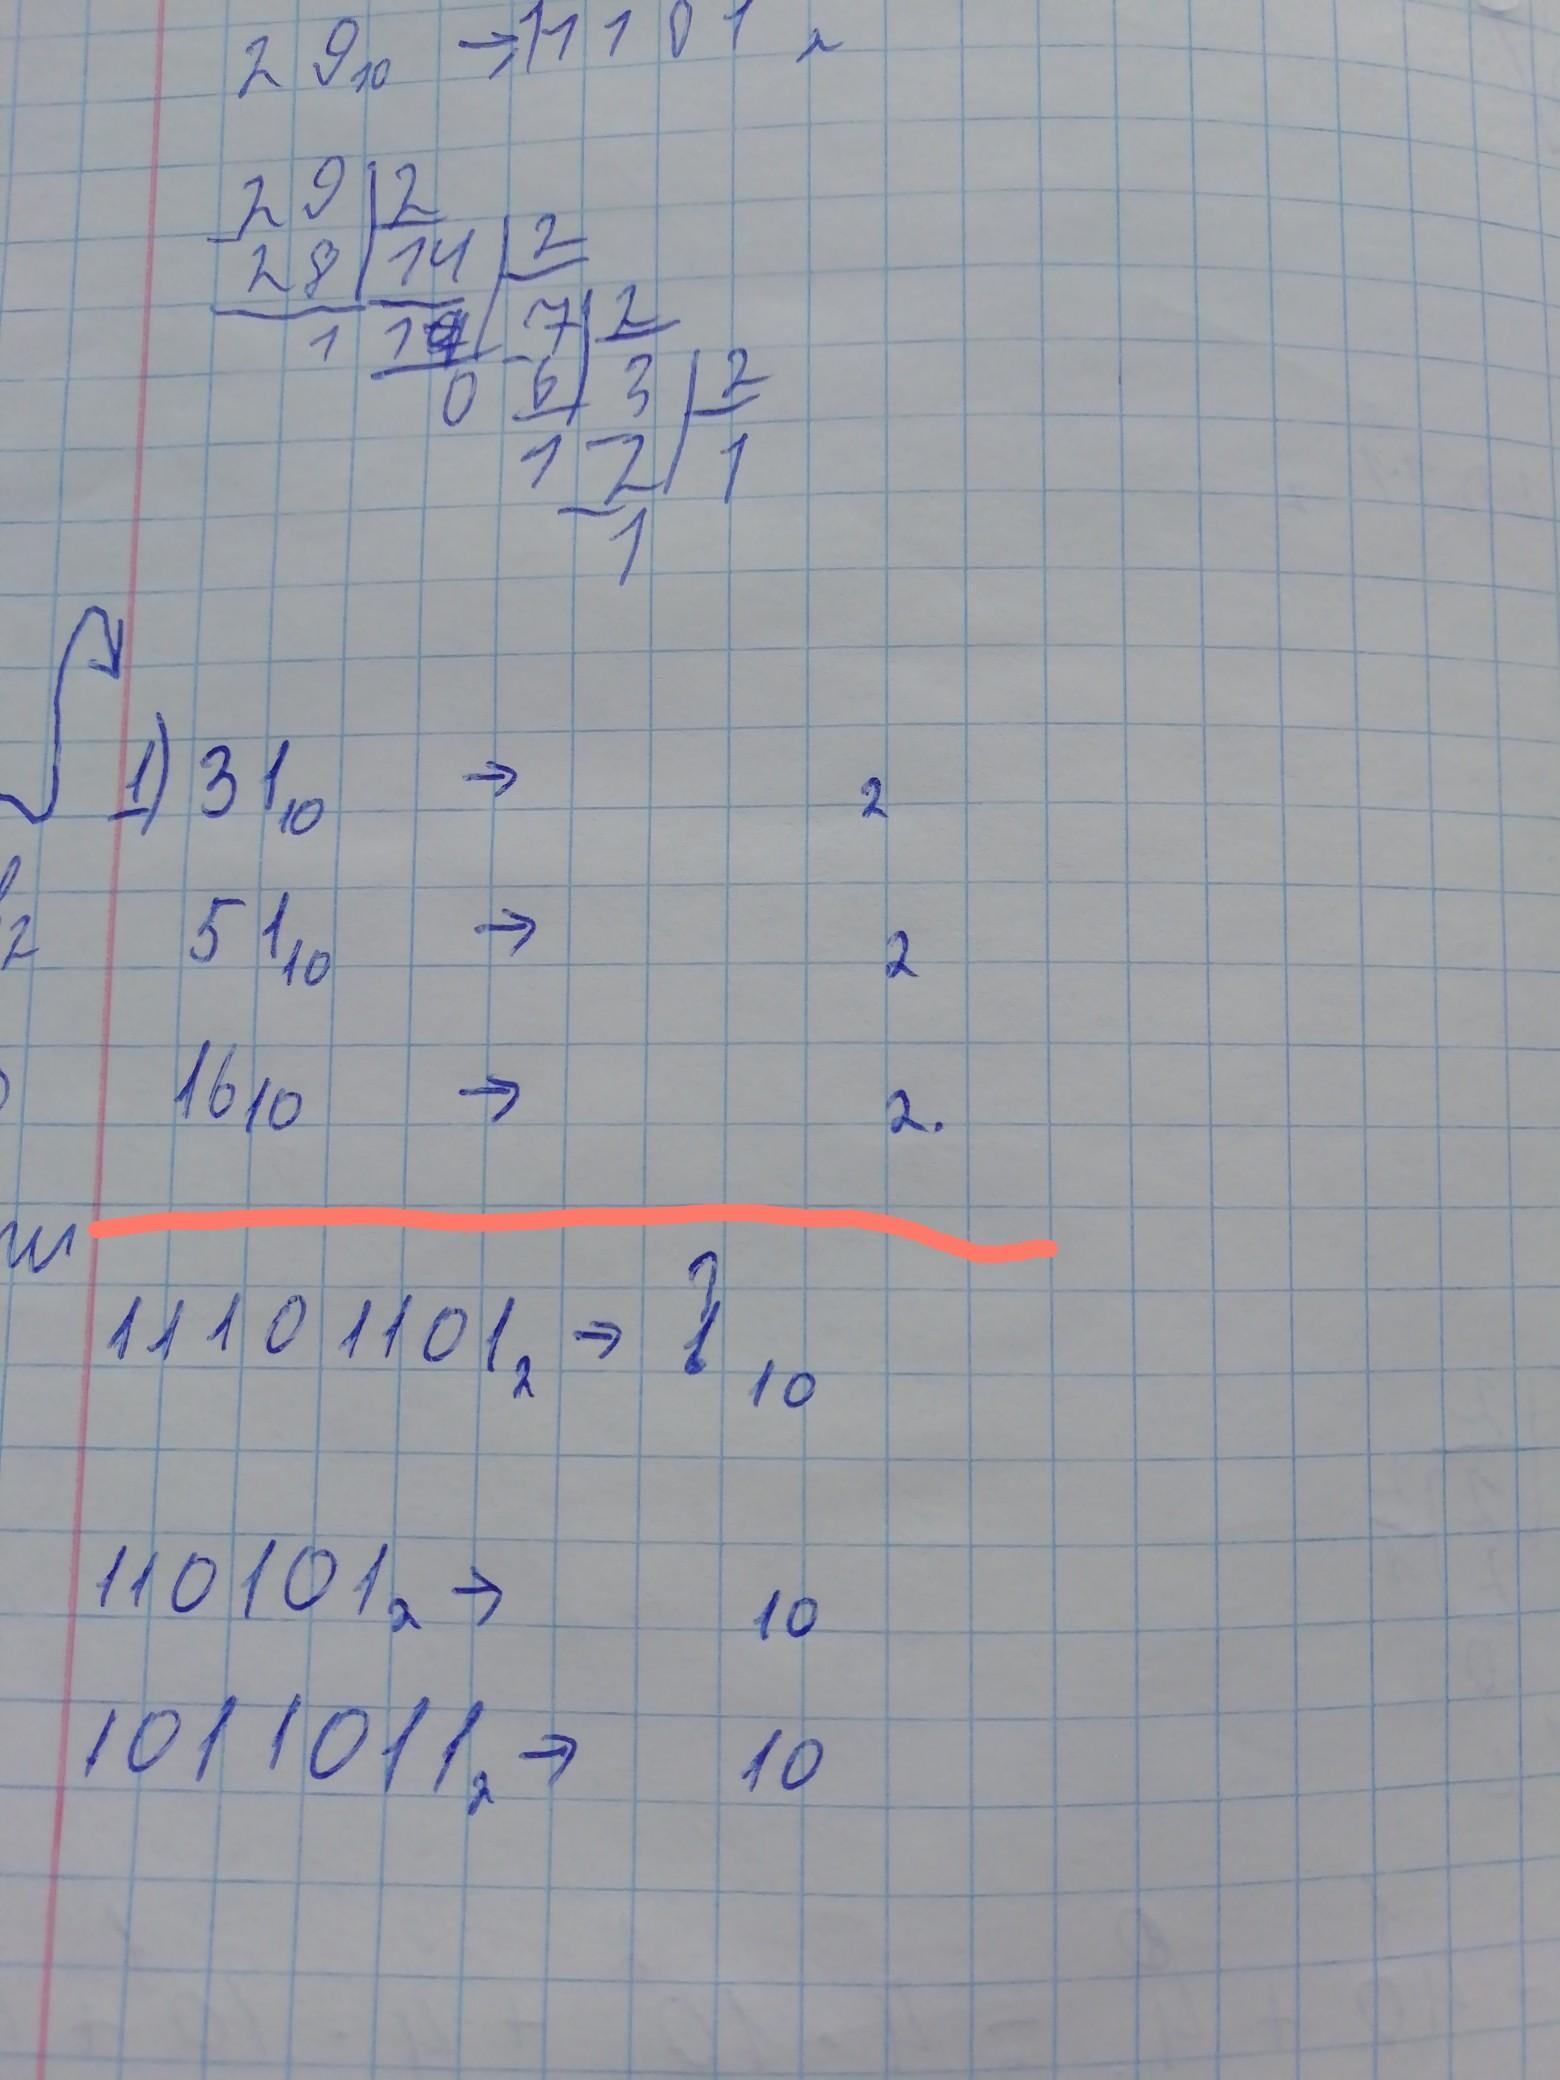 29₁₀ → 11101₂
29 | 2
28 | 14 | 2
1 14 7 | 2
0 6 3 | 2
1 2 1
1
1) 31₁₀ → ₂
51₁₀ → ₂
16₁₀ → ₂.
11101101₂ → ?₁₀
110101₂ → ₁₀
1011011₂ → ₁₀